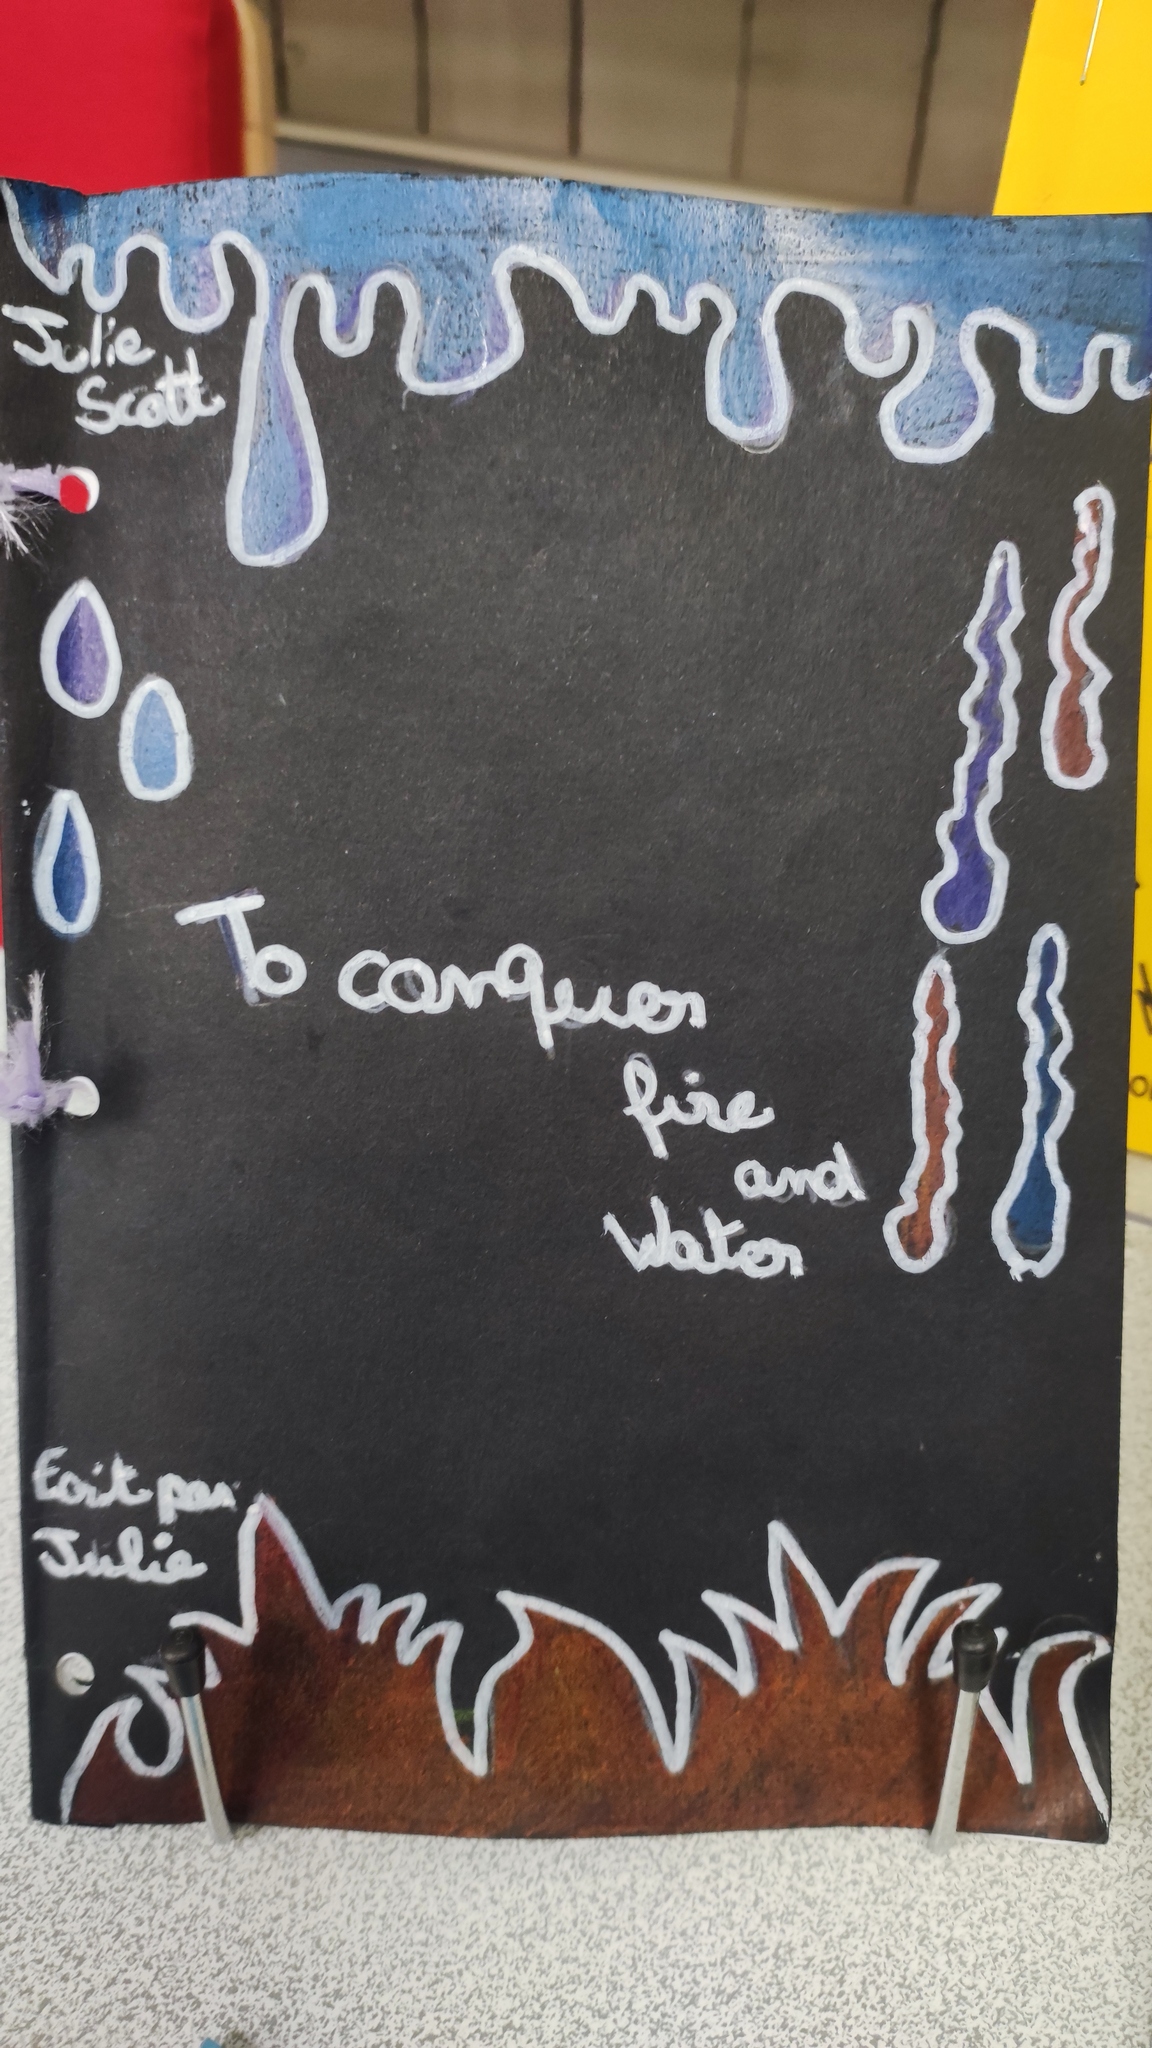 Julie
Scott
To conquer
fire
and
Water
Ecrit par
Julie